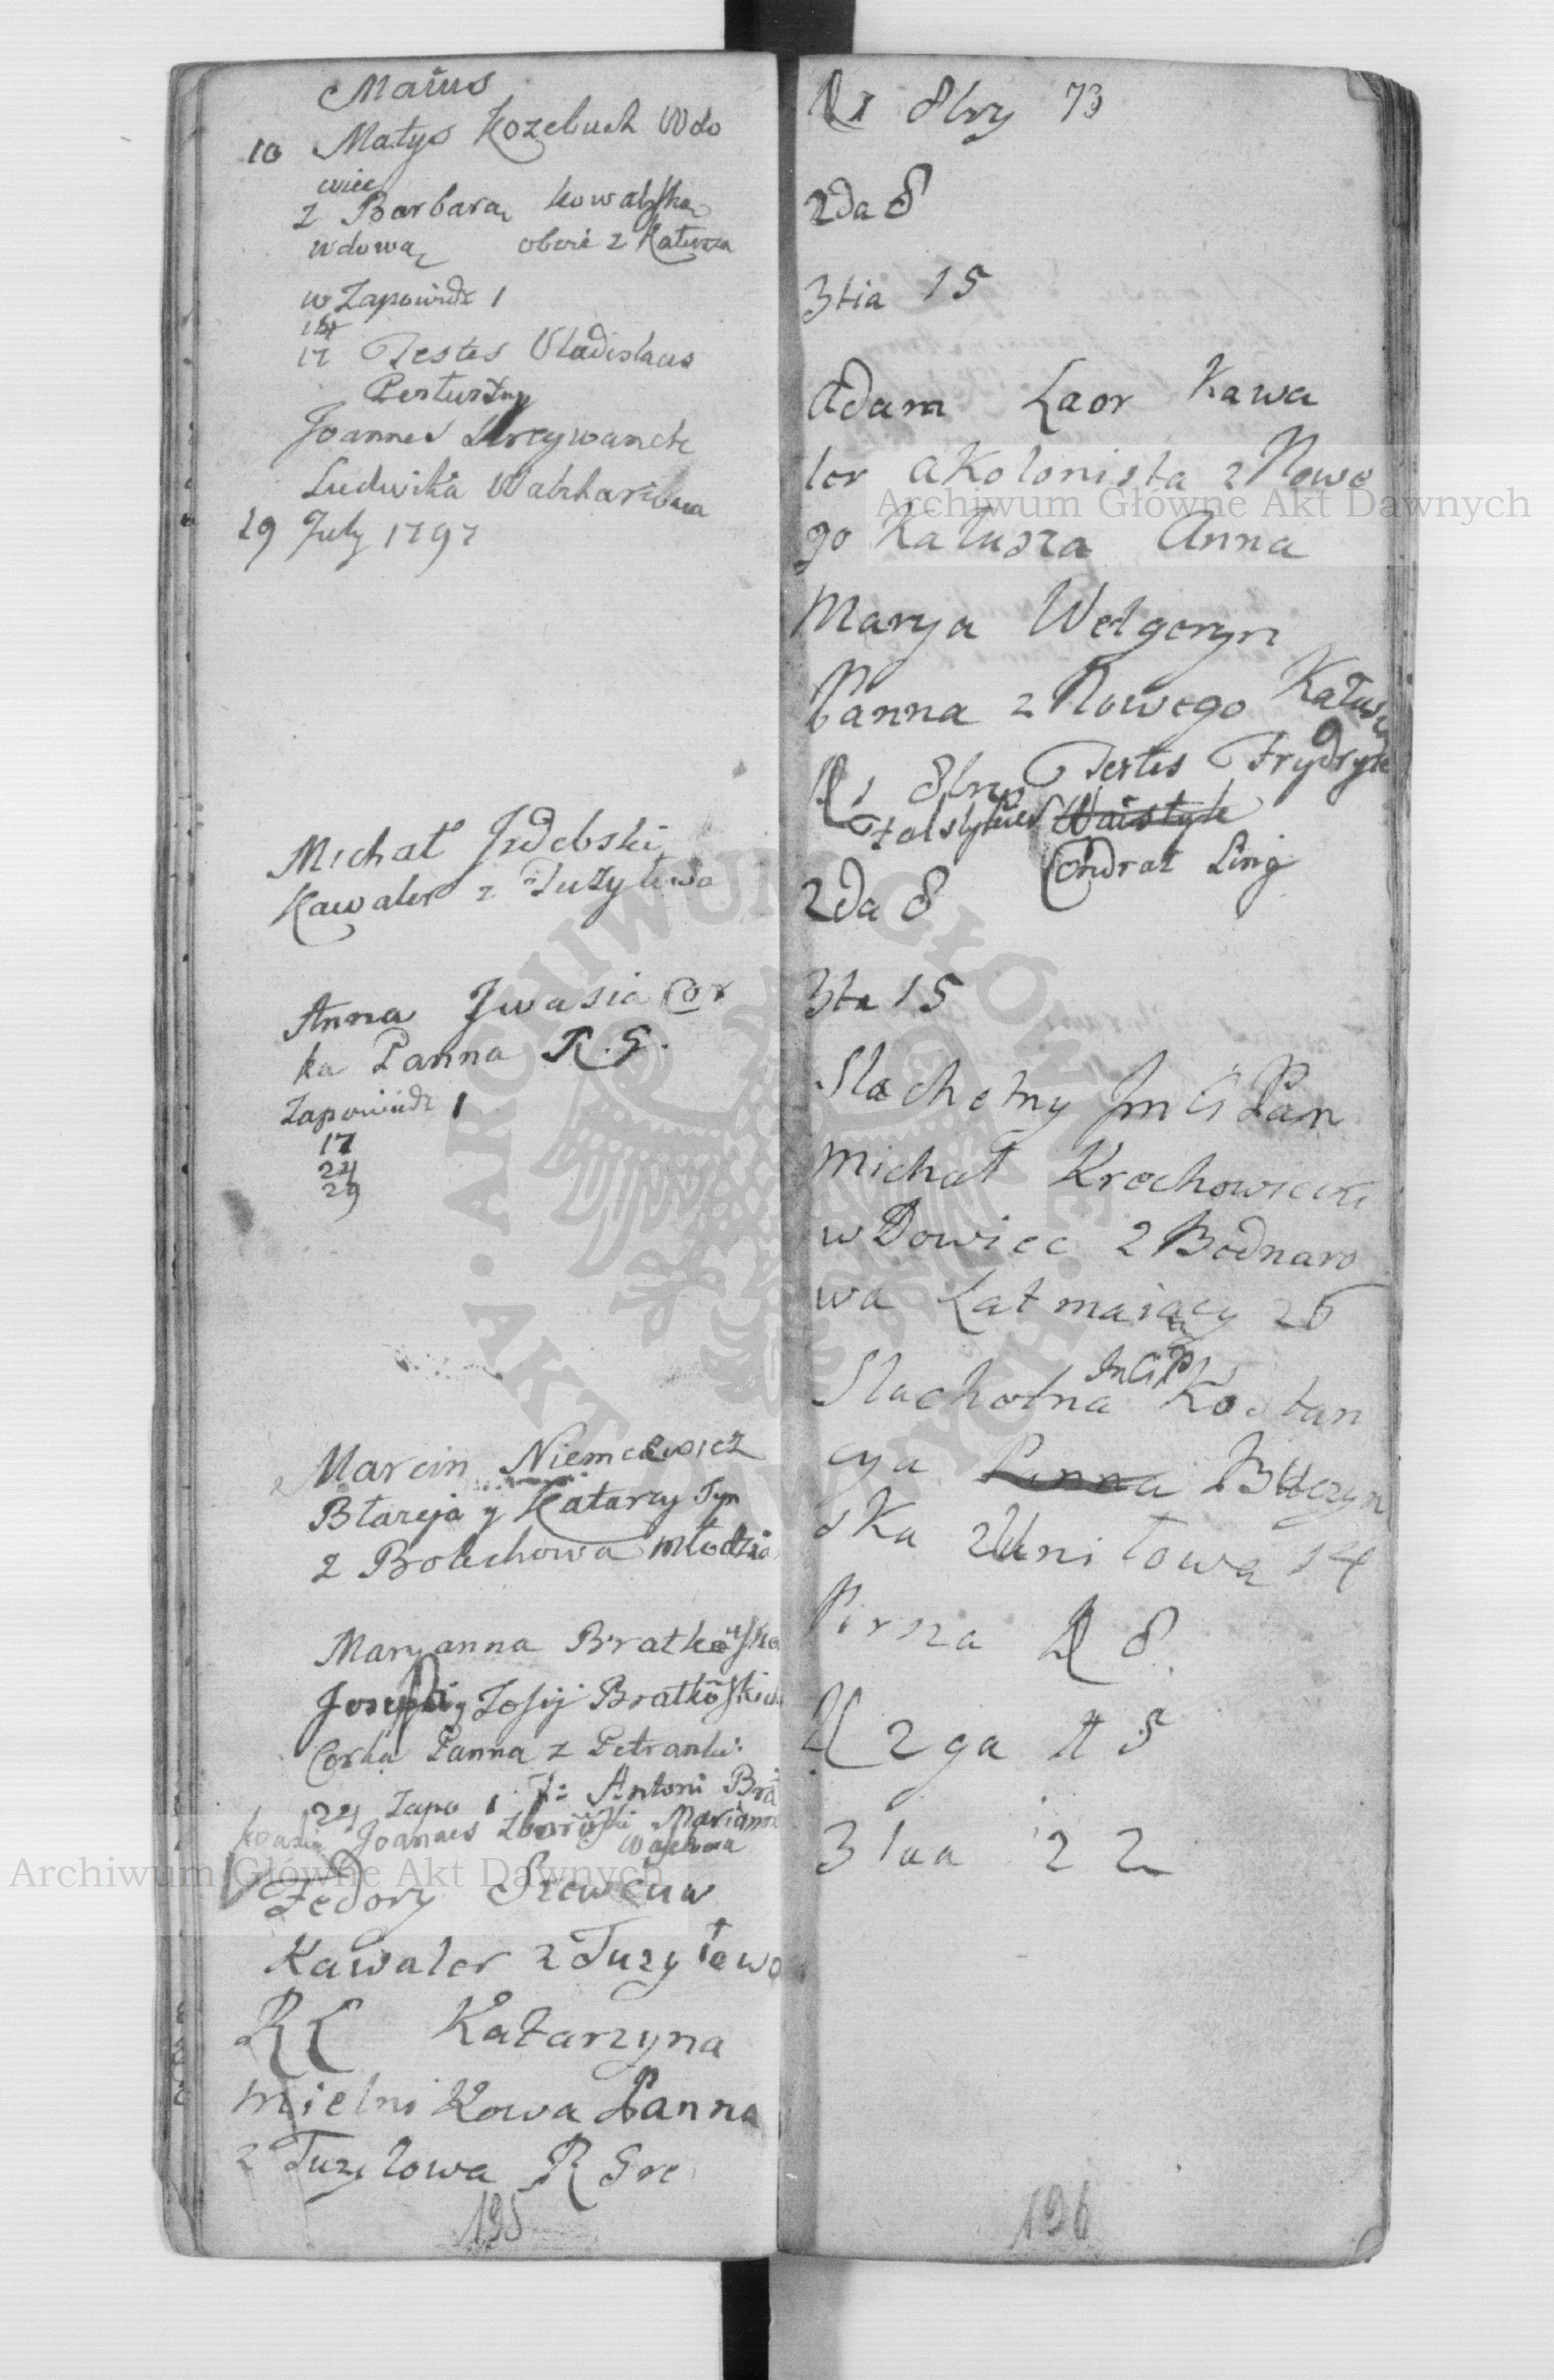 Maius
10 Matys Kozebuch Wdo
wiec
z Barbarą Kowalską
wdową oboie z Kałusza
w Zapowiedz 1
17 Testes Vladislaus
Joannes
Ludwika
29 July 1797
Michał Izdebski
Kawaler z Tużyłowa
Anna Iwasia Cor
ka Panna R. G.
Zapowiedz 1
17
24
29
Marcin Niemcewicz
Błażeja y Katarzy Syn
z Bolechowa Młodzia
Maryanna Bratkowska
Josephi y Zofij Bratkoskich
Corka Panna z Petranki
24 Zapo 1 T: Antoni Bra
Joannes Marianna
Fedory Szewciuw
Kawaler z Tuzyłowa
RC Katarzyna
Mielnikowa Panna
z Tuzyłowa R Gre
195
1 8bry 73
2da 8
3tia 15
Adam Laor Kawa
ler a Kolonista z Nowe
go Kałusza Anna
Marya Welgeryn
Panna z Nowego Kałusz
1 8bry Testes Frydryk
Condrat Ling
2da 8
3tia 15
Slachetny Jmć Pan
Michał Krechowiecki
wDowiec z Bodnaro
wa Lat maiący 26
JmćP
Slachetna Kostan
cya Panna Buczyn
ska z Uniłowa 14
Pirsza D 8
D 2ga D 15
3tia 22
196
Archiwum Główne Akt Dawnych
Archiwum Główne Akt Dawnych
ARCHIWUM GŁÓWNE AKT DAWNYCH